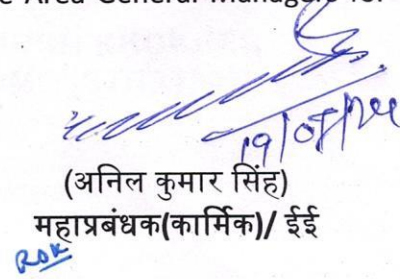 Area General Managers for
19/08/24
(अनिल कुमार सिंह)
महाप्रबंधक(कार्मिक)/ ईई